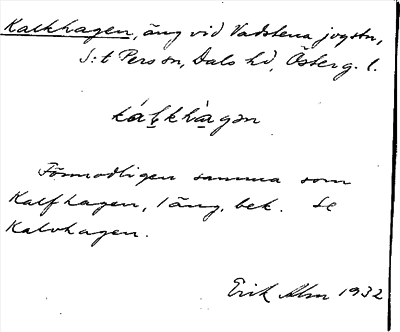 Kalkhagen, äng vid Vadstena jvgstn,
S:t Pers sn, Dals hd, Österg. l.
káḷkhàgən
Förmodligen samma som
Kalfhagen, 1 äng, bek. Se
Kalvhagen.
Erik Alm 1932